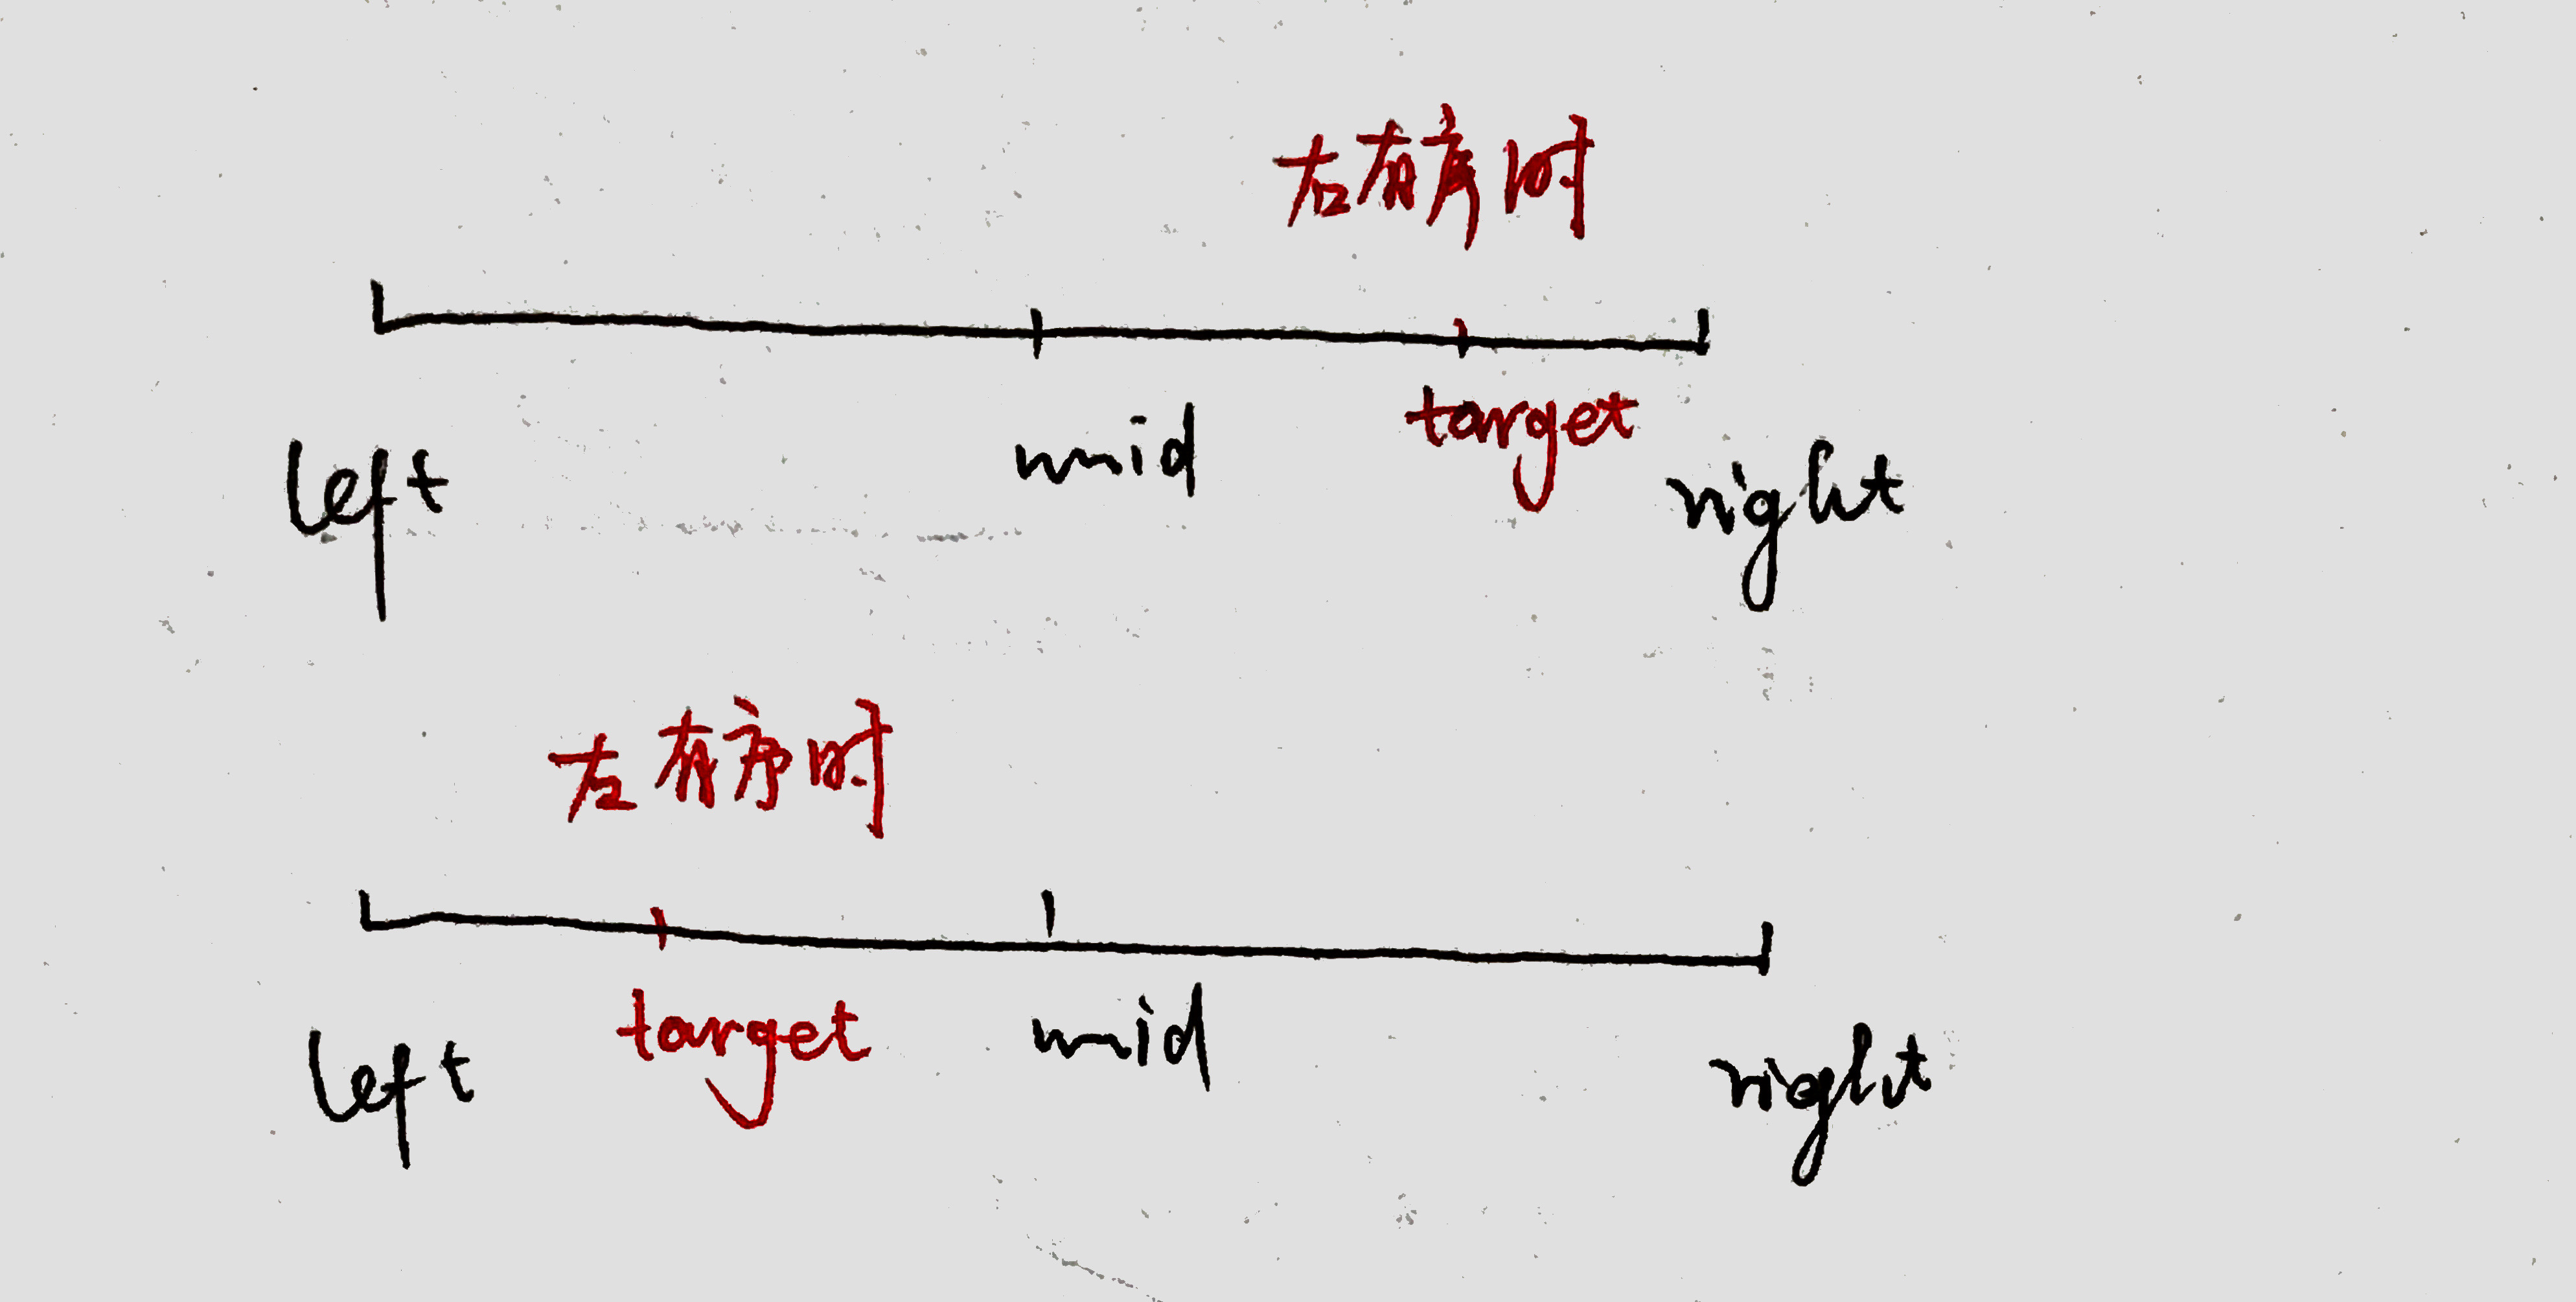 右有序时
left mid target right
左有序时
left target mid right